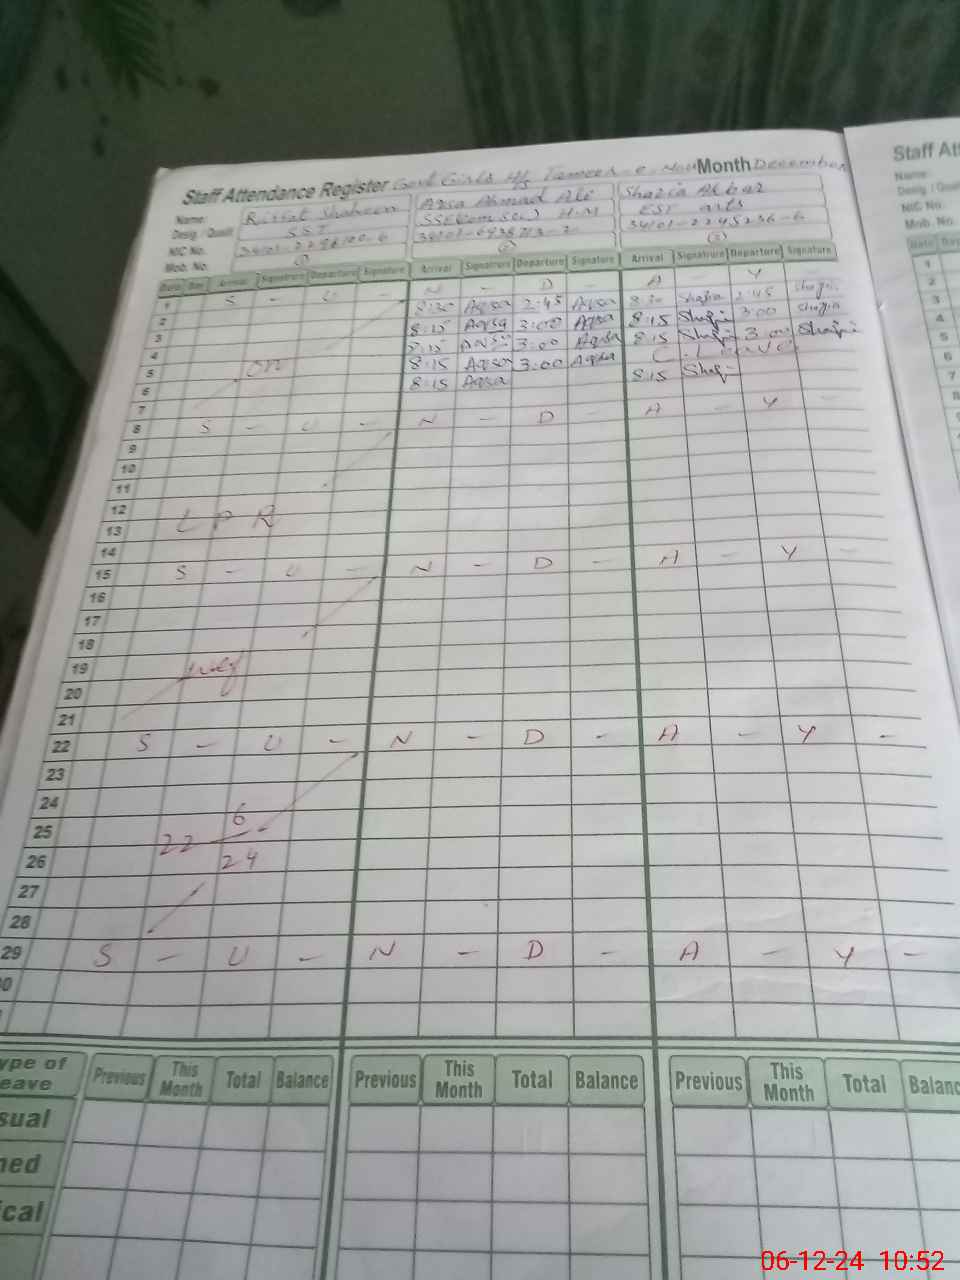 Staff Attendance Register Govt Girls H/S Tameer-e-Nou Month December
Staff Att
Name: Riffat Shaheen Aqsa Ahmad Ali Shazia Akbar
Name:
Desig. / Qualif. SST SSE(Com Sci) H.M ESE arts
Desig. / Quali
NIC No.
NIC No.
Mob. No. (1) (2) (3)
Mob. No.
Date Day Arrival Signature Departure Signature Arrival Signature Departure Signature Arrival Signature Departure Signature
Date Day
1 S - U - N - D - A - Y -
2 8:30 Aqsa 2:45 Aqsa 8:30 Shazia 2:45 Shazia
3 8:15 Aqsa 3:00 Aqsa 8:15 Shazia 3:00 Shazia
4 8:15 Aqsa 3:00 Aqsa 8:15 Shazia 3:00 Shazia
5 on 8:15 Aqsa 3:00 Aqsa C. Leave
6 8:15 Aqsa 8:15 Shazia
7
8 S - U - N - D - A - Y -
9
10
11
12
13 LPR
14
15 S - U - N - D - A - Y -
16
17
18
19 wef
20
21
22 S - U - N - D - A - Y -
23
24
25 6
26 22 24
27
28
29 S - U - N - D - A - Y -
0
ype of
eave Previous This Month Total Balance Previous This Month Total Balance Previous This Month Total Balanc
sual
ned
ical
1
2
3
4
5
6
7
06-12-24 10:52